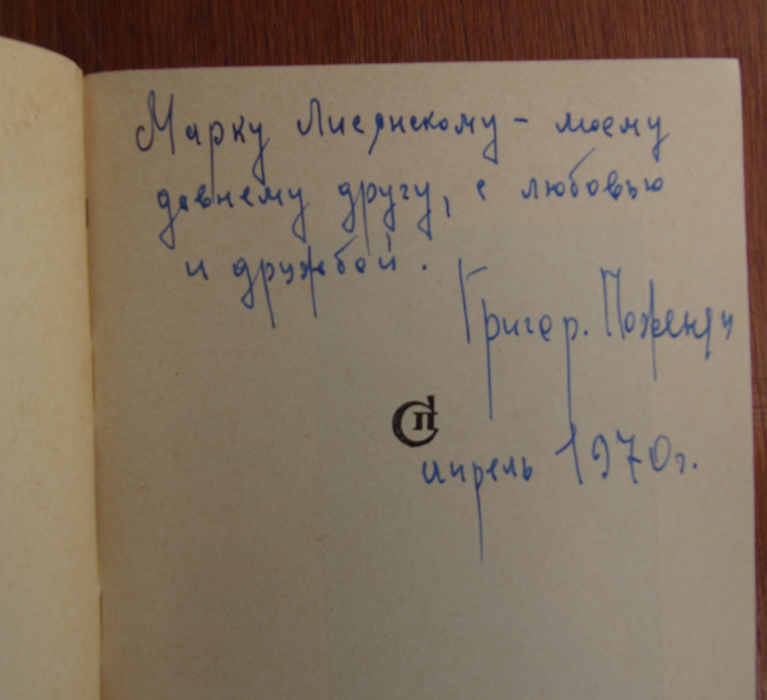 Марку Лисянскому – моему
давнему другу, с любовью
и дружбой.
Григор. Поженян
СП
апрель 1970 г.